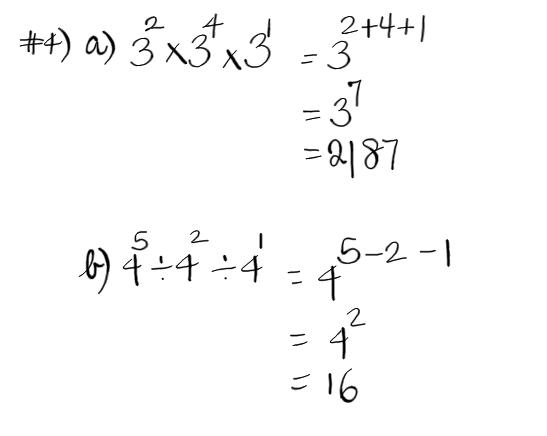 #4) a) 3² × 3⁴ × 3¹ = 3²⁺⁴⁺¹
= 3⁷
= 2187
b) 4⁵ ÷ 4² ÷ 4¹ = 4⁵⁻²⁻¹
= 4²
= 16